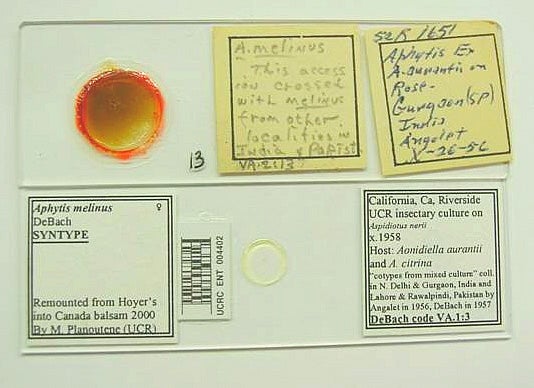 A. melinus
This access
ion crossed
with melinus
from other
localities in
India & Pakist.
VA:2:1?
S2R 1651
Aphytis Ex
A. aurantii on
Rose-
Gurgaon (SP)
India
Angalet
X-26-56
13
Aphytis melinus ♀
DeBach
SYNTYPE
Remounted from Hoyer's
into Canada balsam 2000
By M. Planoutene (UCR)
UCRC ENT 004402
California, Ca, Riverside
UCR insectary culture on
Aspidiotus nerii
x.1958
Host: Aonidiella aurantii
and A. citrina
"cotypes from mixed culture" coll.
in N. Delhi & Gurgaon, India and
Lahore & Rawalpindi, Pakistan by
Angalet in 1956, DeBach in 1957
DeBach code VA.1:3